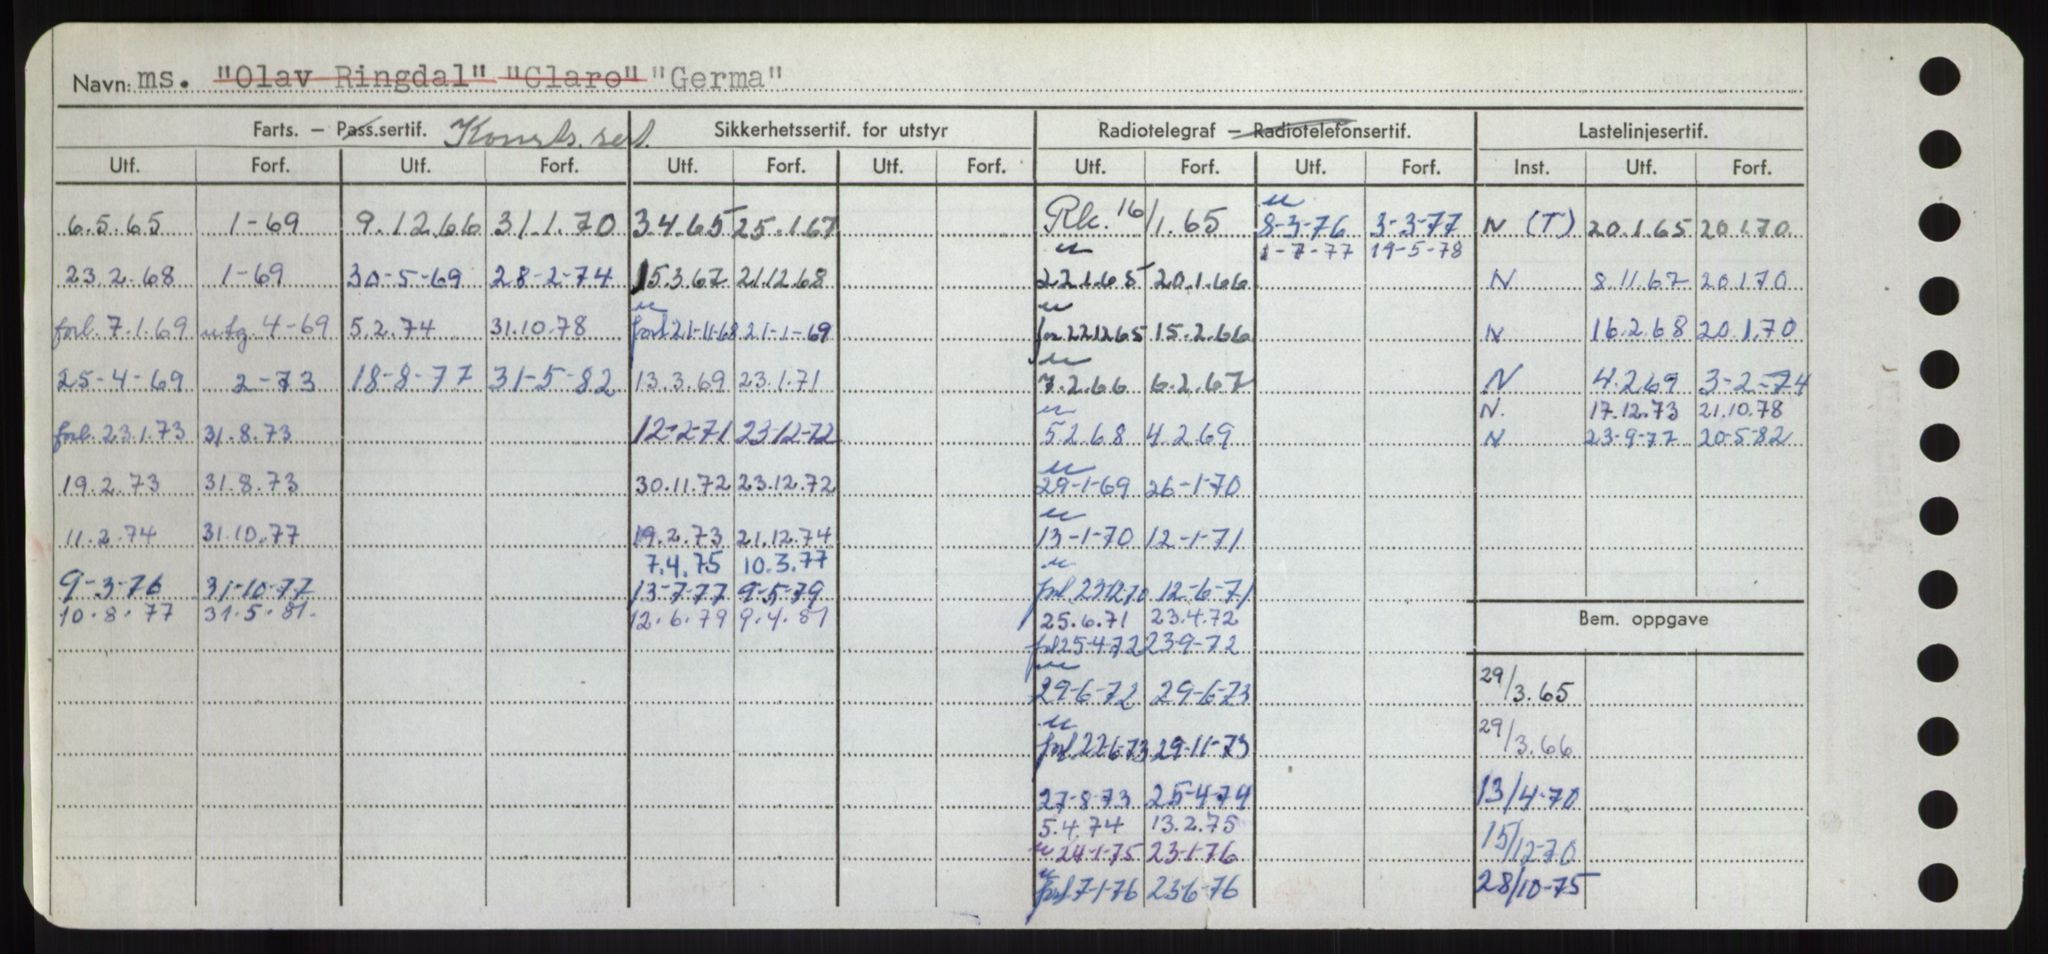 Navn: ms. "Olav Ringdal" "Claro" "Germa"
Farts. – Pass.sertif. Konstr. sert. Sikkerhetssertif. for utstyr Radiotelegraf – Radiotelefonsertif. Lastelinjesertif.
Utf. Forf. Utf. Forf. Utf. Forf. Utf. Forf. Utf. Forf. Utf. Forf. Inst. Utf. Forf.
6.5.65 1-69 9.12.66 31.1.70 3.4.65 25.1.67 Rk. 16/1.65 8-3-76 3-3-77 N (T) 20.1.65 20.1.70
1-7-77 19-5-78
23.2.68 1-69 30-5-69 28-2-74 15.3.67 21.12.68 22.1.65 20.1.66 N 8.11.67 20.1.70
forl. 7.1.69 utg. 4-69 5.2.74 31.10.78 forl 21-11-68 21-1-69 for 22.12.65 15.2.66 N 16.2.68 20.1.70
25-4-69 2-73 18-8-77 31-5-82 13.3.69 23.1.71 7.2.66 6.2.67 N 4.2.69 3-2-74
N. 17.12.73 21.10.78
forl. 23.1.73 31.8.73 12-2-71 23-12-72 5.2.68 4.2.69 N 23-9-77 20-5-82
19.2.73 31.8.73 30.11.72 23.12.72 29-1-69 26-1-70
11.2.74 31.10.77 19.2.73 21.12.74 13-1-70 12-1-71
7.4.75 10.3.77
9-3-76 31-10-77 13-7-77 9-5-79 forl 23-12-70 12-6-71
10.8.77 31.5.81. 12.6.79 9.4.81 25.6.71 23.4.72
Bem. oppgave
forl 25-4-72 23-9-72
29-6-72 29-6-73 29/3.65
forl. 22-6-73 29-11-73 29/3.66
27-8-73 25-4-74 13/4-70
5.4.74 13.2.75
24-1-75 23-1-76 15/12-70
forl 7-1-76 23-6-76 28/10-75